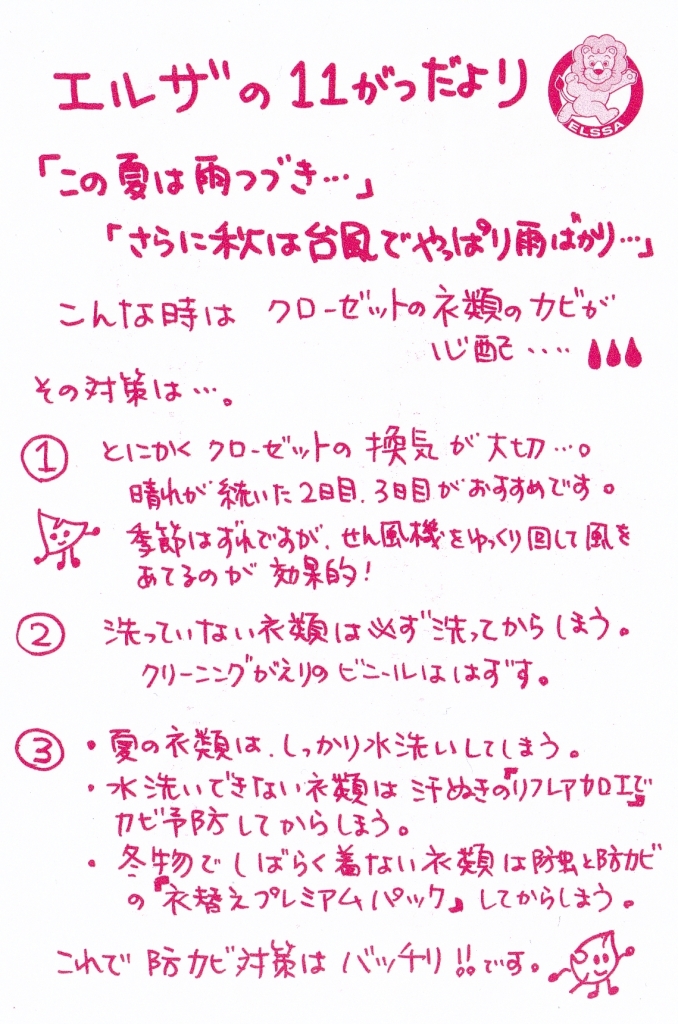 エルザの11がつだより
ELSSA
「この夏は雨つづき…」
「さらに秋は台風でやっぱり雨ばかり…」
こんな時は クローゼットの衣類のカビが
心配‥‥
その対策は…。
① とにかく クローゼットの 換気が大切…。
晴れが続いた2日目、3日目がおすすめです。
季節はずれですが、せん風機をゆっくり回して風を
あてるのが 効果的!
② 洗っていない衣類は必ず洗ってからしまう。
クリーニングがえりのビニールははずす。
③ ・夏の衣類は、しっかり水洗いしてしまう。
・水洗いできない衣類は汗ぬきの『リフレア加工』で
カビ予防してからしまう。
・冬物でしばらく着ない衣類は防虫と防カビ
の『衣替えプレミアムパック』してからしまう。
これで防カビ対策はバッチリ!!です。